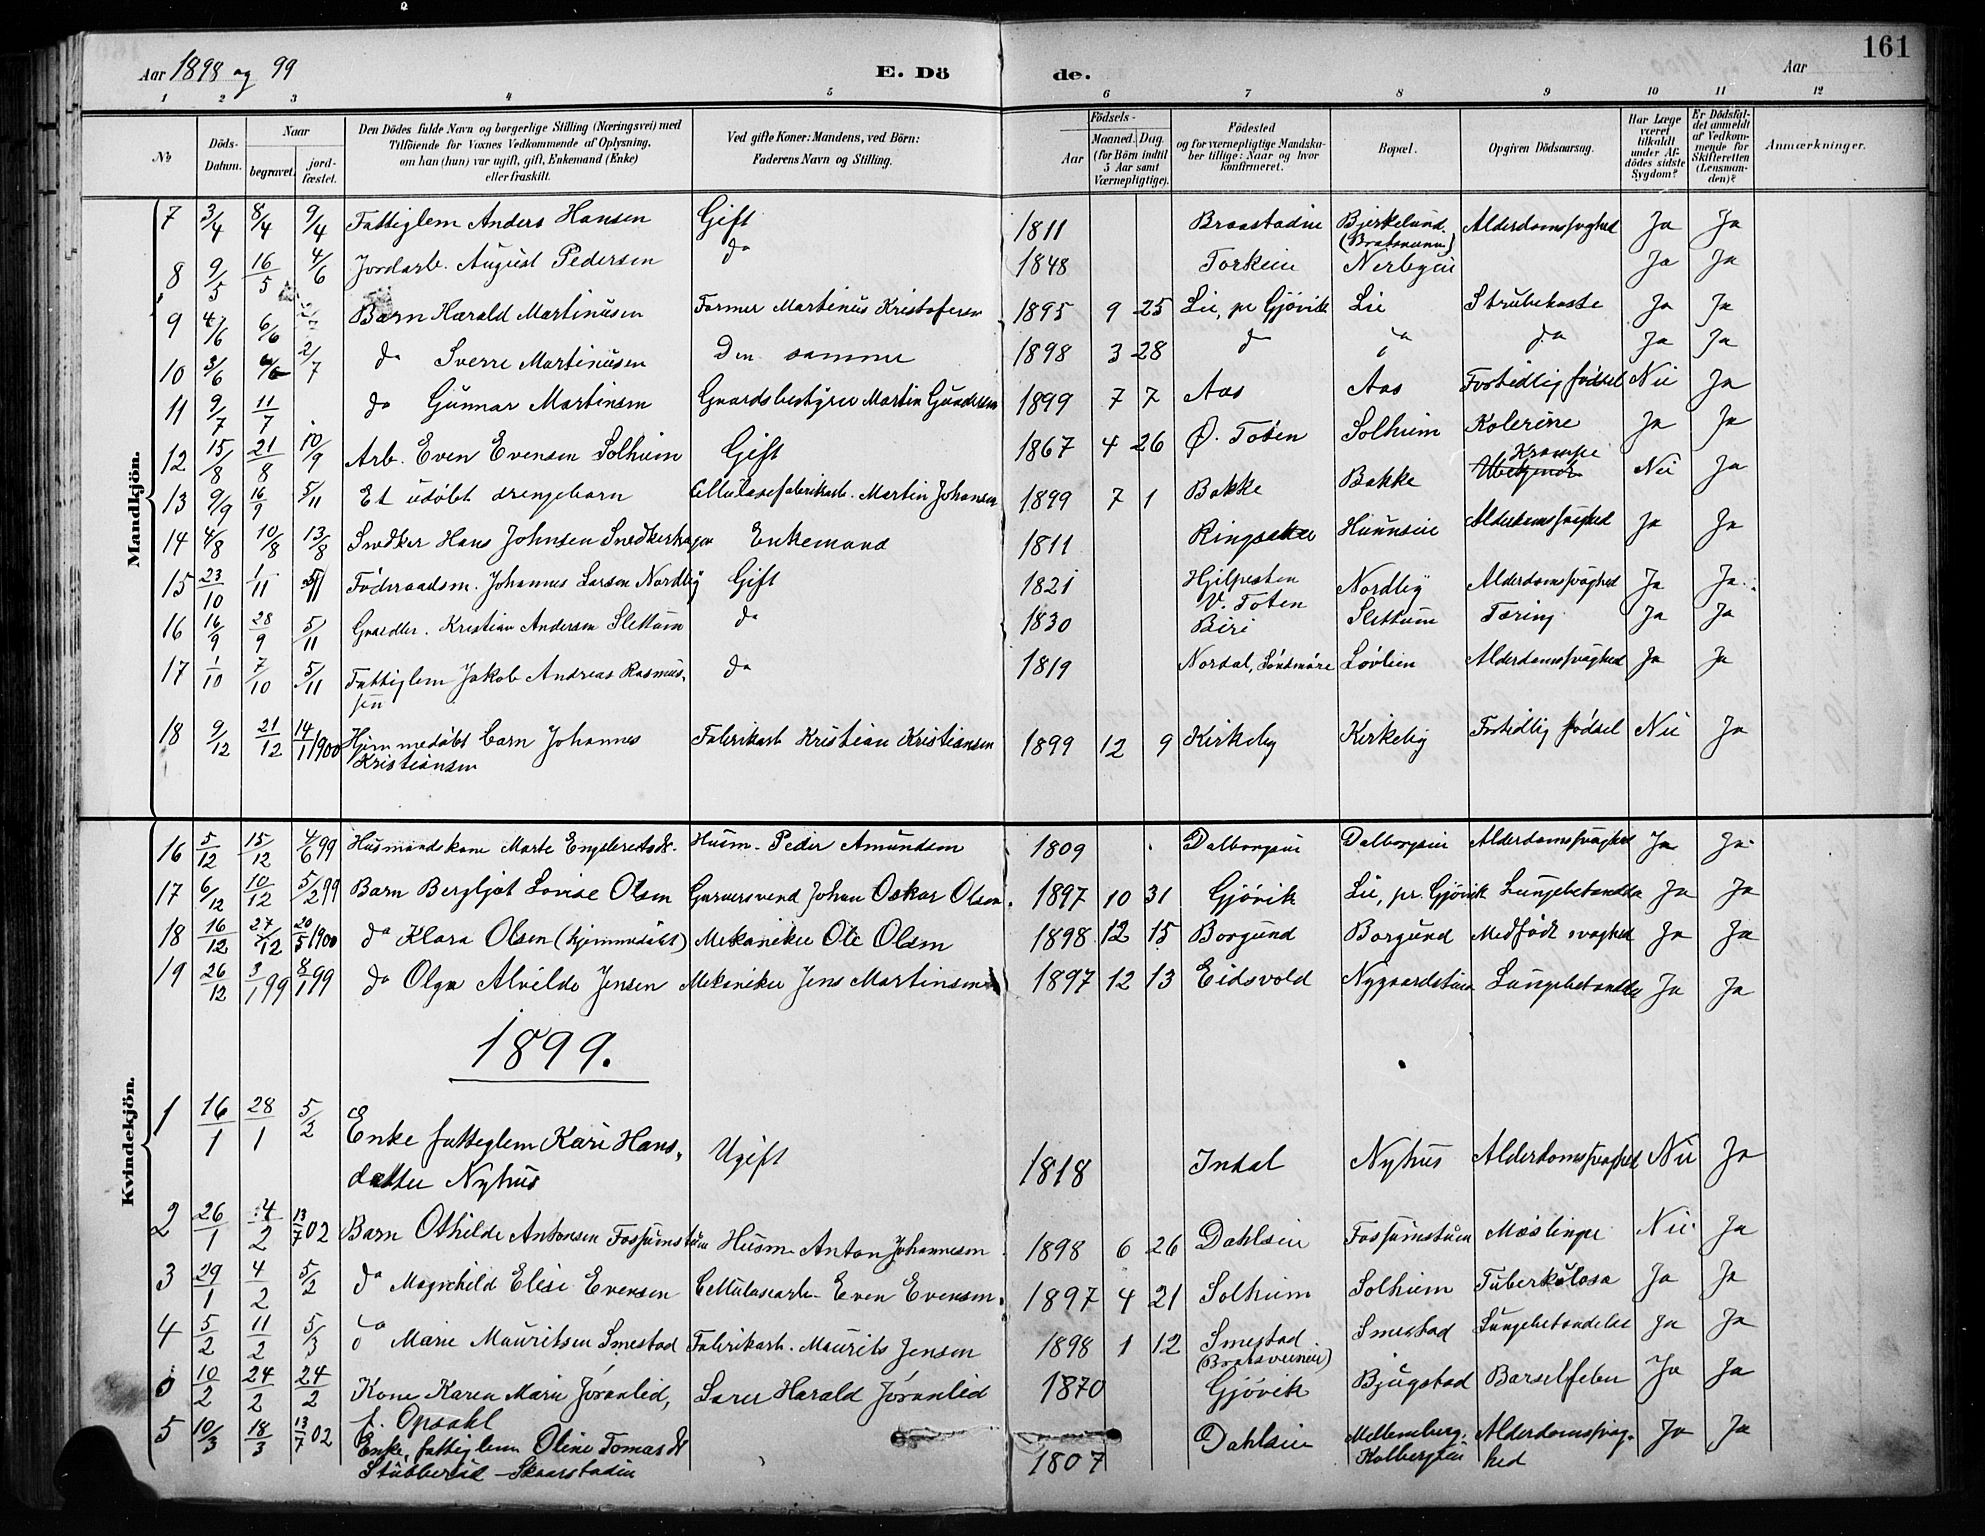 Aar 1898 og 99 E. Dö de. Aar 161
1 2 3 4 5 6 7 8 9 10 11 12
No Döds-Datum. Naar begravet. jordfæstet. Den Dödes fulde Navn og borgerlige Stilling (Næringsvei) med Tilföiende for Voxnes Vedkommende af Oplysning, om han (hun) var ugift, gift, Enkemand (Enke) eller fraskilt. Ved gifte Koner: Mandens, ved Börn: Faderens Navn og Stilling. Födsels- Aar Maaned. Dag. (for Börn indtil 5 Aar samt Værnepligtige). Födested og for værnepligtige Mandskaber tillige: Naar og hvor konfirmeret. Bopæl. Opgiven Dödsaarsag. Har Læge været tilkaldt under Afdödes sidste Sygdom? Er Dödsfaldet anmeldt af Vedkommende for Skifteretten (Lensmanden)? Anmærkninger.
Mandkjön.
7 3/4 8/4 9/4 Fattiglem Anders Hansen Gift 1811 Braastadeie Bjerkelund Alderdomssvaghed Ja Ja
8 9/5 16/5 4/6 Jordarb. August Pedersen do 1848 Torkeie Nerbyeie Ja Ja
9 4/6 6/6 Barn Harald Martinusen Former Martinus Kristofersen 1895 9 25 Lie, pr Gjövik Lie Strubehoste Ja Ja
10 3/6 6/6 2/7 do Sverre Martinusen Den samme 1898 3 28 do do do Ja Ja
11 9/7 11/7 do Gunnar Martinsen Gaardsbestyrer Martin Gundersen 1899 7 7 Aas Aas Fortidlig födsel Nei Ja
12 15/8 21/8 10/9 Arb. Even Evensen Solheim Gift 1867 4 26 Ö. Toten Solheim Kolerine Ja Ja
13 9/9 16/9 5/11 Et udöbt drengebarn Cellulosefabrikarb. Martin Johansen 1899 7 1 Bakke Bakke Krampe Nei Ja
14 4/8 10/8 13/8 Snedker Hans Johnsen Snedkerhagen Enkemand 1811 Ringsaker Hunnseie Alderdomssvaghed Ja Ja
15 23/10 1/11 5/11 Föderaadsm. Johannes Larsen Nordby Gift 1821 Hjelpesten V. Toten Nordby Alderdomssvaghed Ja Ja
16 16/9 28/9 5/11 Gaardbr. Kristian Andersen Slettum do 1830 Biri Slettum Tæring Ja Ja
17 1/10 7/10 5/11 Fattiglem Jakob Andreas Rasmussen do 1819 Nordal, Söndmöre Lövlien Alderdomssvaghed Ja Ja
18 9/12 21/12 14/1 1900 Hjemmedöbt barn Johannes Kristiansen Fabrikarb Kristian Kristiansen 1899 12 9 Kirkeby Kirkeby Fortidlig födsel Nei Ja
Kvindekjön.
16 5/12 15/12 4/6 99 Husmandskone Marte Engebretsdt. Husm. Peder Amundsen 1809 Dalborgeie Dalborgeie Alderdomssvaghed Ja Ja
17 6/12 10/12 5/2 99 Barn Bergljot Lovise Olsen Garversvend Johan Oskar Olsen 1897 10 31 Gjövik Lie, pr. Gjövik Lungebetændelse Ja Ja
18 16/12 27/12 20/5 1900 do Klara Olsen (hjemmedöbt) Mekaniker Ole Olsen 1898 12 15 Borgund Borgund Medfödt svaghed Ja Ja
19 26/12 3/1 99 8/1 99 do Olga Alvilde Jensen Mekaniker Jens Martinsen 1897 12 13 Eidsvold Nygaardstuen Lungebetændelse Ja Ja
1899.
1 16/1 28/1 5/2 Enke fattiglem Kari Hansdatter Nyhus Ugift 1818 Indal Nyhus Alderdomssvaghed Nei Ja
2 26/1 4/2 13/7 02 Barn Othilde Antonsen Fossumstuen Husm. Anton Johannesen 1898 6 26 Dahlseie Fossumstuen Mæslinger Nei Ja
3 29/1 4/2 5/2 do Magnhild Elise Evensen Cellulosearb. Even Evensen 1897 4 21 Solheim Solheim Tuberkulose Ja Ja
4 5/2 11/2 5/3 do Marie Mauritsen Smestad Fabrikarb. Maurits Jensen 1898 1 12 Smestad Smestad Lungebetændelse Ja Ja
5 10/2 24/2 24/2 Kone Karen Marie Jöranlid, f. Opsahl Sarer Harald Jöranlid 1870 Gjövik Bjugstad Barselfeber Ja Ja
5 10/3 18/3 13/7 02 Enke, fattiglem Oline Tomasdt Stubberud - Skaarstadeie 1807 Dahlseie Mellemberg, Kolbergeie Alderdomssvaghed Ja Ja